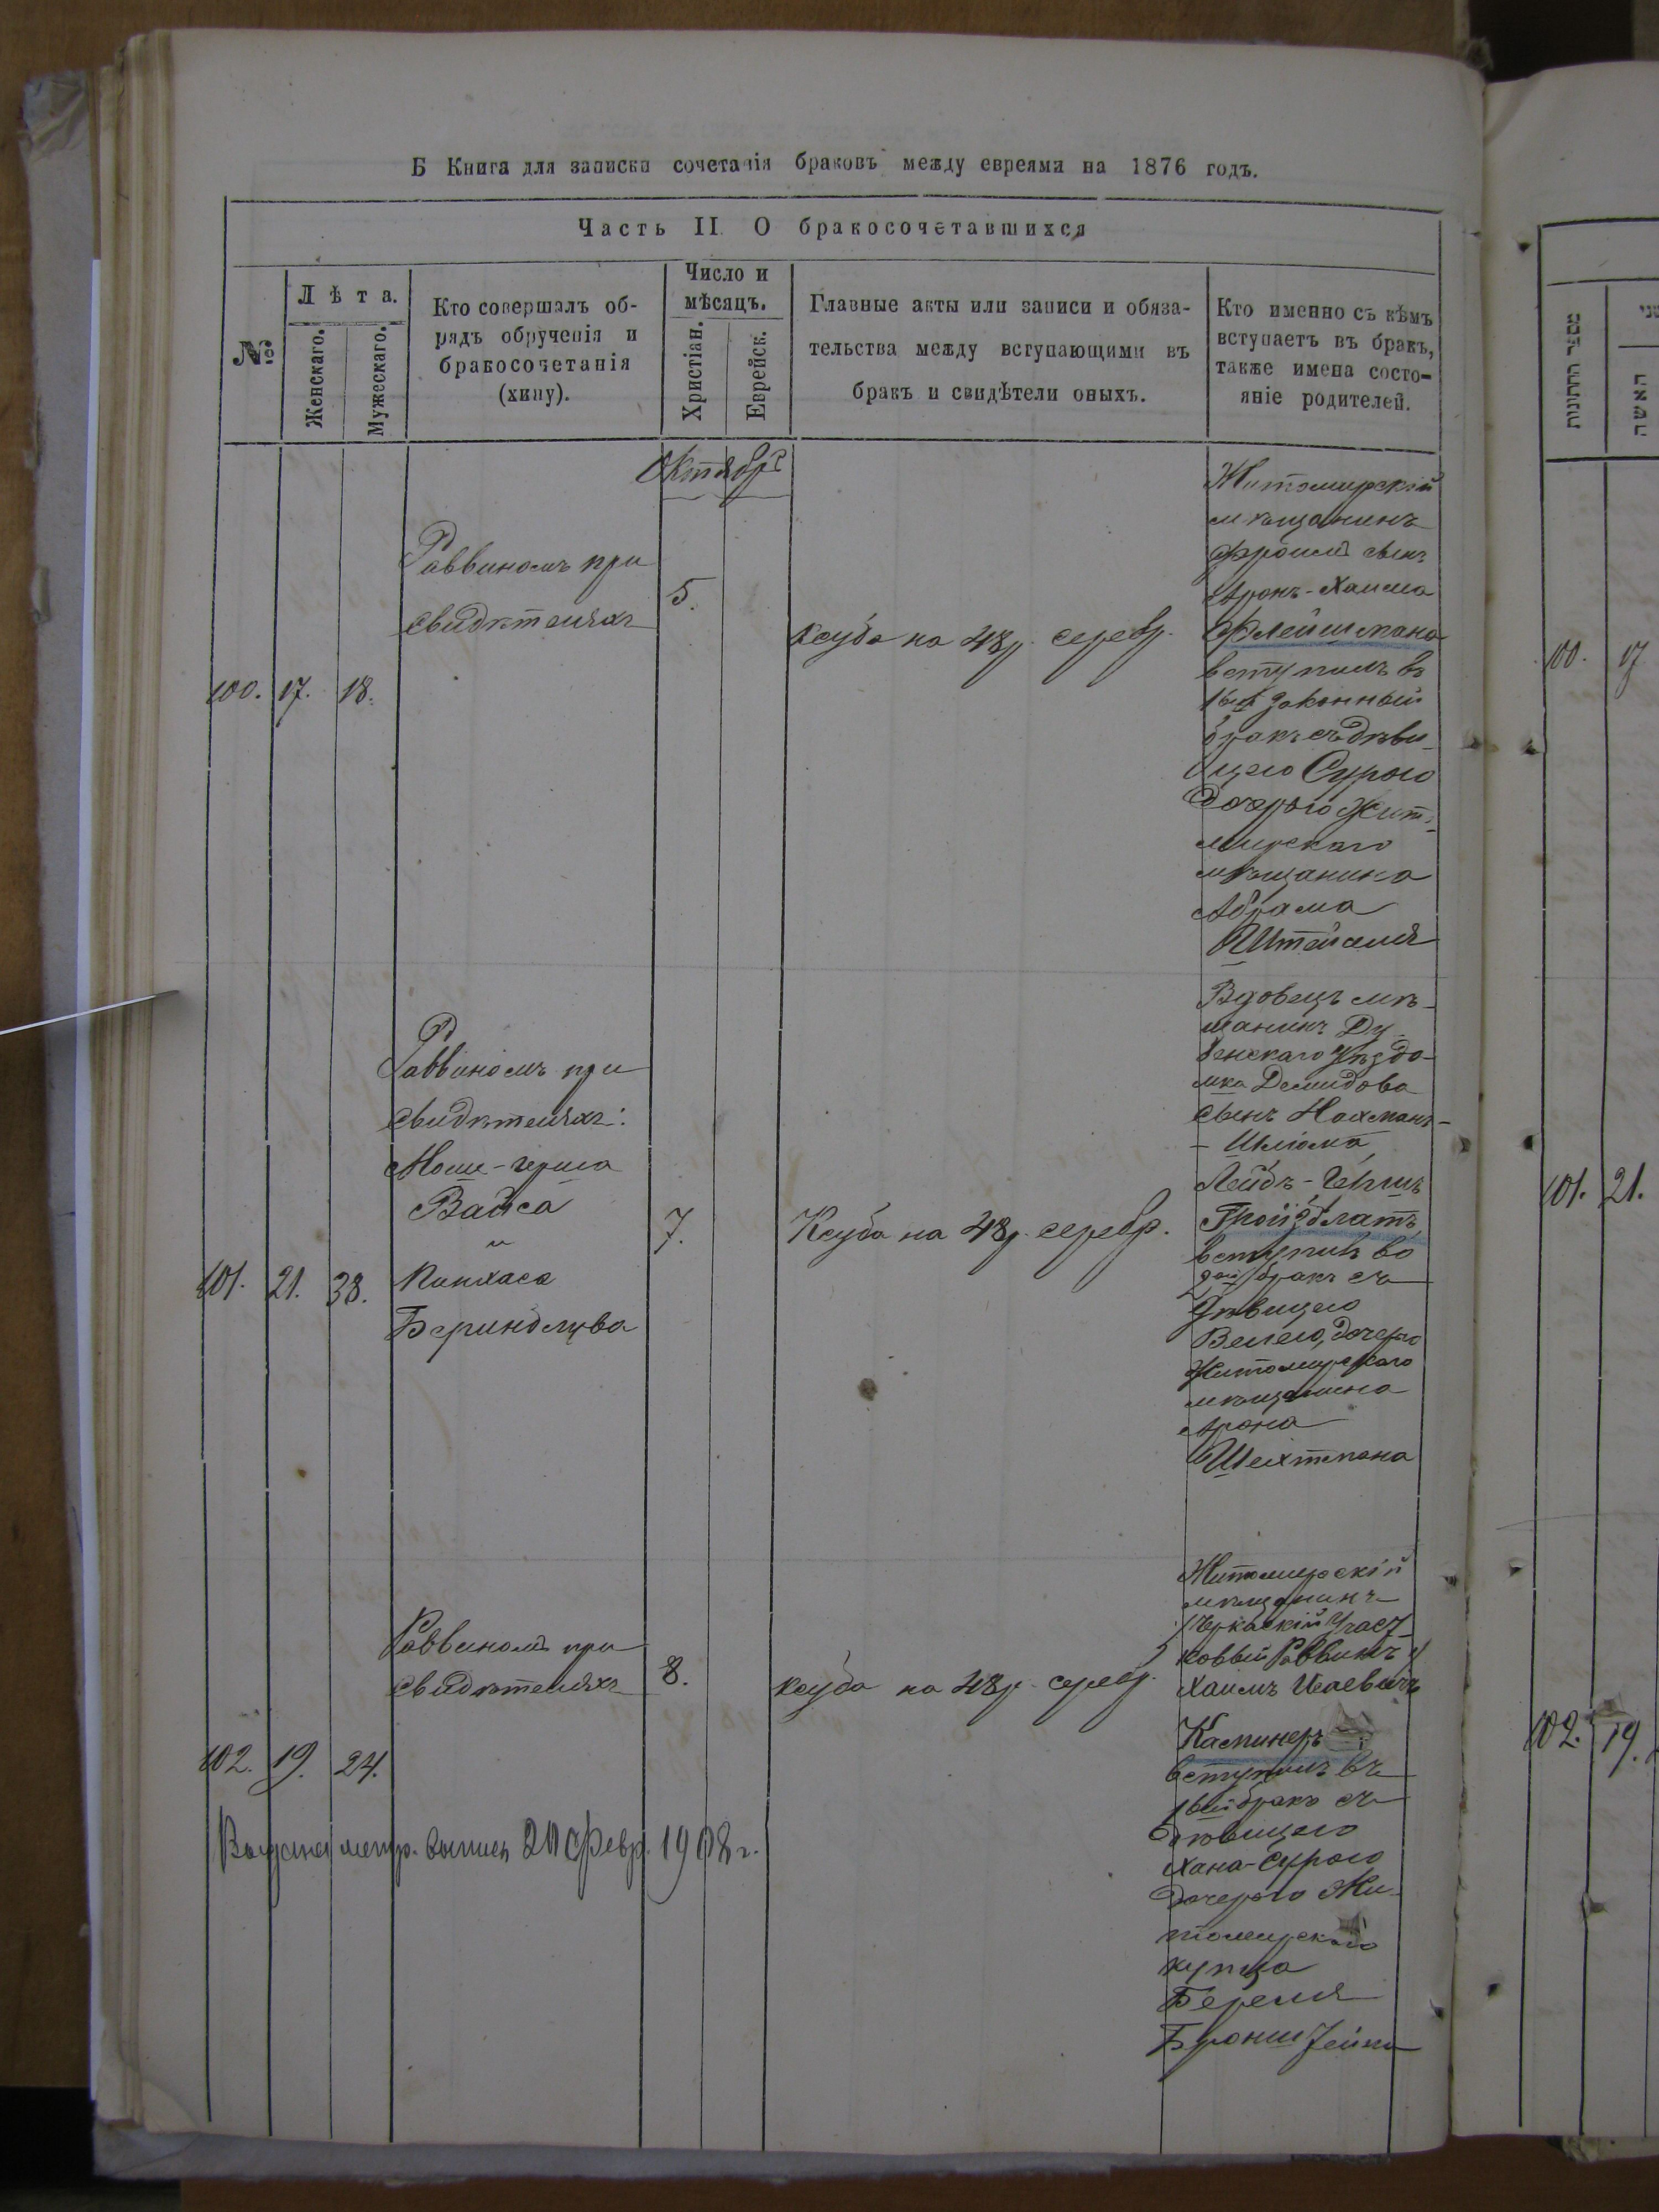 Б Книга для записки сочетанія браковъ между евреями на 1876 годъ.
Часть II О бракосочетавшихся
№
Лѣта.
Женскаго.
Мужескаго.
Кто совершалъ об-
рядъ обрученія и
бракосочетанія
(хипу).
Число и
мѣсяцъ.
Христіан.
Еврейск.
Главные акты или записи и обяза-
тельства между вступающими въ
бракъ и свидѣтели оныхъ.
Кто именно съ кѣмъ
вступаетъ въ бракъ,
также имена состо-
яніе родителей.
Октябрь
100. 17. 18.
Раввиномъ при
свидѣтеляхъ
5.
Ксуба на 48 р. серебр.
Житомирскій
мѣщанинъ
Фроимъ сынъ
Аронъ-Хаима
Флейшмана
вступилъ въ
1вый законный
бракъ съ дѣви-
цею Сурою
дочерью Жит-
мирскаго
мѣщанина
Абрама
Штейселя
101. 21. 38.
Раввиномъ при
свидѣтеляхъ:
Моше-Герша
Вайса
и
Пинхаса
7.
Ксуба на 48 р. серебр.
Вдовецъ мѣ-
щанинъ Ду-
бенскаго уѣзда
мка Демидова
сынъ Нахманъ-
- Шлiома
Лейбъ-Гершъ
Гройзблатъ
вступилъ во
2ой бракъ съ
дѣвицею
Велею, дочерью
Житомирскаго
мѣщанина
Арона
Шехтмана
102. 19. 24.
Раввиномъ при
свидѣтеляхъ
8.
Ксуба на 48 р. серебр.
Житомирскій
мѣщанинъ
Черкаскій Участ-
ковый Раввинъ
Хаимъ Исаевичъ
Каминеръ
вступилъ въ
1вый бракъ съ
дѣвицею
Хана-Сурою
дочерью Жи-
томирскаго
купца
Береля
Бронштейна
Выдана метр. выпись 20 Февр. 1908 г.
מספר החתונות
האשה
100. 17
101. 21.
102. 19.